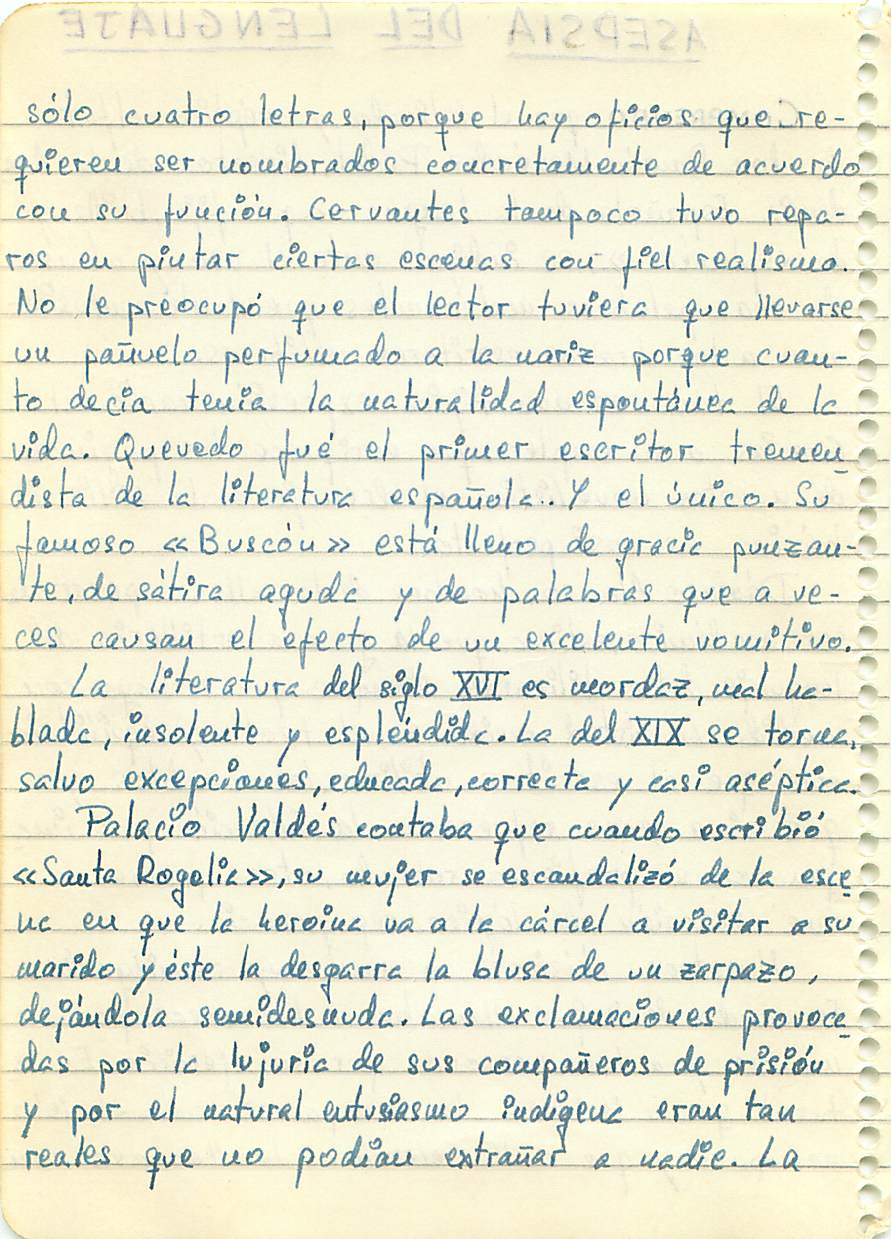 ASEPSIA DEL LENGUAJE
sólo cuatro letras, porque hay oficios que re-
quieren ser nombrados concretamente de acuerdo
con su función. Cervantes tampoco tuvo repa-
ros en pintar ciertas escenas con fiel realismo.
No le preocupó que el lector tuviera que llevarse
un pañuelo perfumado a la nariz porque cuan-
to decia tenia la naturalidad espontánea de la
vida. Quevedo fué el primer escritor tremen
dista de la literatura española. Y el único. Su
famoso «Buscón» está lleno de gracia punzan-
te, de sátira aguda y de palabras que a ve-
ces causan el efecto de un excelente vomitivo.
La literatura del siglo XVI es mordaz, mal ha-
blada, insolente y espléndida. La del XIX se torna,
salvo excepciones, educada, correcta y casi aséptica.
Palacio Valdés contaba que cuando escribió
«Santa Rogelia», su mujer se escandalizó de la esce
na en que la heroina va a la cárcel a visitar a su
marido y éste la desgarra la blusa de un zarpazo,
dejándola semidesnuda. Las exclamaciones provoca
das por la lujuria de sus compañeros de prisión
y por el natural entusiasmo indigena eran tan
reales que no podian extrañar a nadie. La